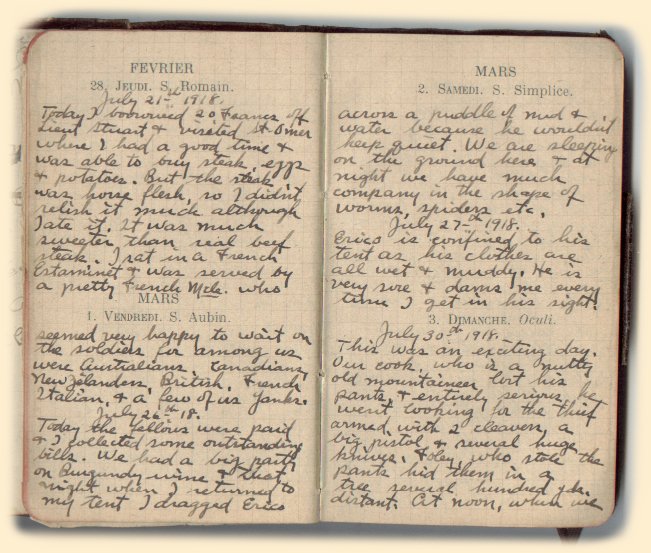 FEVRIER
28. JEUDI. S. Romain.
July 21st 1918.
Today I boorowed 20 francs off
Lieut Stuart & visited St Omer
where I had a good time &
was able to buy steak, eggs
& potatoes. But the steak
was horse flesh, so I didn't
relish it much although
I ate it. It was much
sweeter than real beef
steak. I sat in a French
Estaminet & was served by
a pretty French Mele. who
MARS
1. VENDREDI. S. Aubin.
seemed very happy to wait on
the soldiers for among us
were Australians, Canadians,
New Zelanders, British, French
Italian, & a few of us Yanks.
July 26th 18.
Today the fellows were paid
& I collected some outstanding
bills. We had a big party
on Burgundy wine & that
night when I returned to
my tent I dragged Erico
MARS
2. SAMEDI. S. Simplice.
across a puddle of mud &
water because he wouldn't
keep quiet. We are sleeping
on the ground here & at
night we have much
company in the shape of
worms, spiders etc.
July 27th 1918.
Erico is confined to his
tent as his clothes are
all wet & muddy. He is
very sore & damns me every
time I get in his sight.
3. DIMANCHE. Oculi.
July 30th 1918.
This was an exciting day.
Our cook, who is a nutty
old mountaineer, lost his
pants, & entirely serious, he
went looking for the thief
armed with 2 cleavers, a
big pistol & several huge
knives. Foley who stole the
pants hid them in a
tree several hundred yds.
distant. At noon, when we